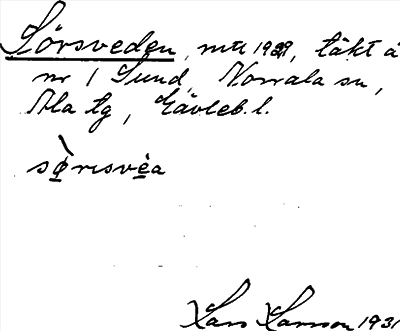 Sörsveden, mtl 1929, täkt å
nr 1 Sund, Norrala sn,
Ala tg, Gävleb. l.
sø̀rısvèa
Lars Larsson 1931